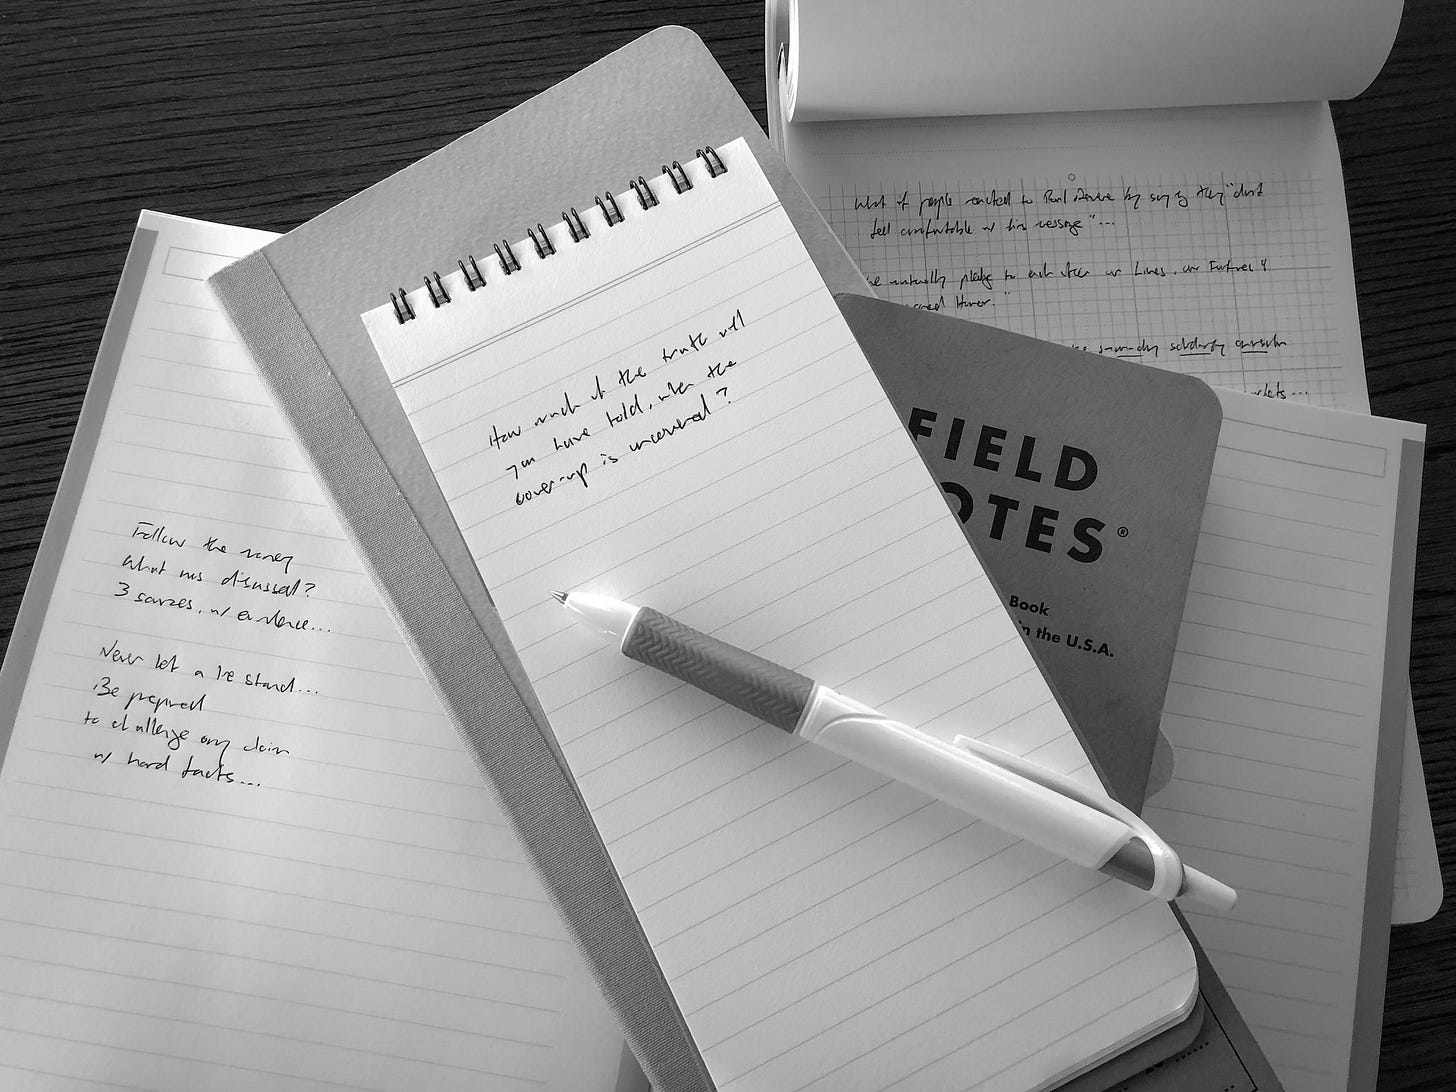 What if people reacted to Paul Revere by saying they "don't
feel comfortable w/ his message"...
we mutually pledge to each other our Lives, our Fortunes &
sacred Honor."
solidarity
How much of the truth will
you have told, when the
cover-up is uncovered?
FIELD
NOTES®
Book
in the U.S.A.
Follow the money
What was discussed?
3 sources, w/ evidence...
Never let a lie stand...
Be prepared
to challenge any claim
w/ hard facts...